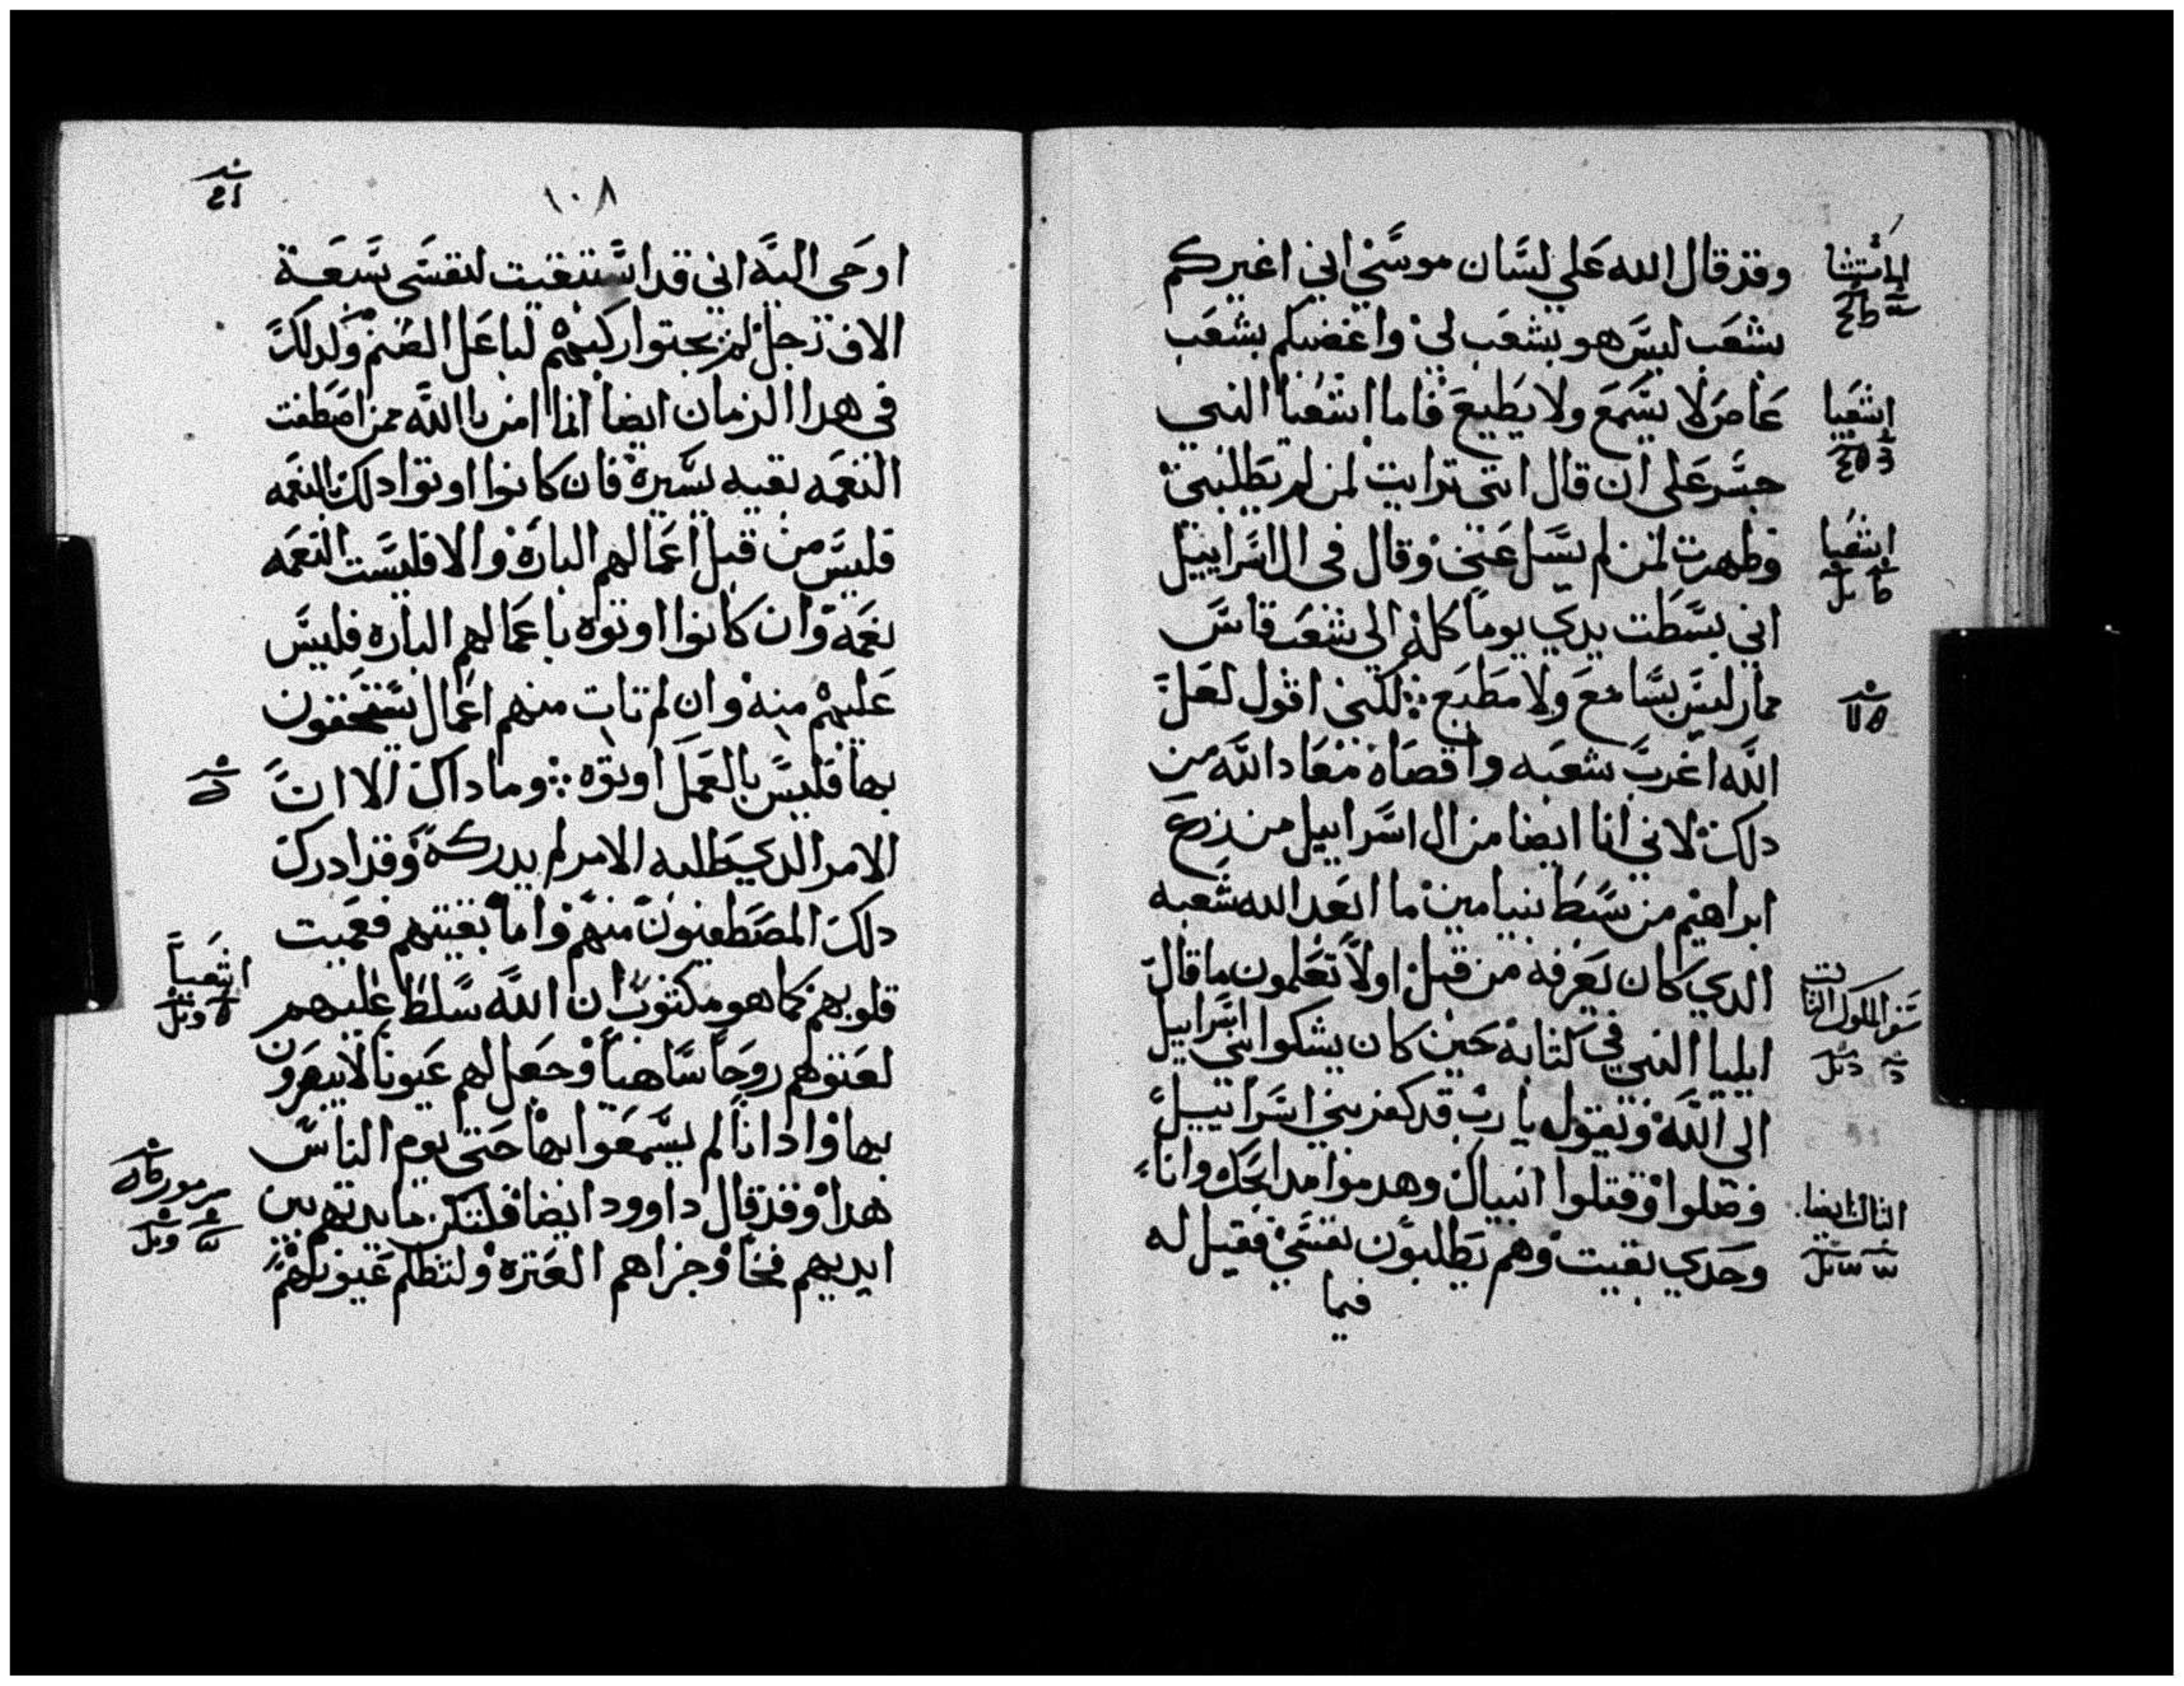 وقد قال الله علي لسان موسي اني اغيركم
بشعب ليس هو بشعب لي واغضبكم بشعب
عاص لا يسمع ولا يطيع فاما اشعيا النبي
جسر علي ان قال انني ترايت لمن لم يطلبني
وظهرت لمن لم يسل عني وقال في ال اسراييل
اني بسطت يدي يوما كله الي شعب قاس
ممار ليس بسامع ولا مطيع لكني اقول لعل
الله اغرب شعبه واقصاه معاد الله من
دلك لاني انا ايضا من ال اسراييل من زرع
ابراهيم من سبط بنيامين ما ابعد الله شعبه
الدي كان يعرفه من قبل اولا تعلمون ما قال
ايليا النبي في كتابه حين كان يشكوا بني اسراييل
الي الله ويقول يا رب قد كفر بني اسراييل
وضلوا وقتلوا انبياك وهدموا مدابحك وانا
وحدي بقيت وهم يطلبون نفسي فقيل له
فيما
الاستثنا
اشعيا
اشعيا
سفر الملوك الثالث
الثالث ايضا
١٠٨
اوحي اليه اني قد استبقيت لنفسي سبعة
الاف رجل لم يجتوا ركبهم لباعل الصنم وكدلك
في هدا الزمان ايضا انما امن بالله ممن اصطفت
النعمه بقيه يسيره فان كانوا اوتوا دلك بالنعمه
فليس من قبل اعمالهم الباره والا فليست النعمه
نعمه وان كانوا اوتوه باعمالهم الباره فليس
عليهم منه وان لم تات منهم اعمال يستحقون
بها فليس بالعمل اوتوه وما داك الا ان
الامر الدي يطلبه الامر لم يدركه وقد ادرك
دلك المصطفون منهم واما بقيتهم فعميت
قلوبهم كما هو مكتوب ان الله سلط عليهم
لعتوهم روحا ساهيا وجعل لهم عيونا لا يبصرون
بها وادانا لم يسمعوا بها حتي يوم الناس
هدا وقد قال داوود ايضا فلتكن مايدتهم بين
ايديهم فخا وجزاهم العتره ولتظلم عيونهم
اشعيا
مزمور